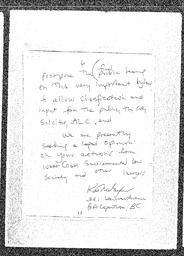 postpone the public hearing
on this very important bylaw
to allow clarification and
input from the public, the City
Solicitor, ALC, and
We are presently
seeking a legal opinion
on your actions from
West Coast Environmental Law
Society and other lawyers